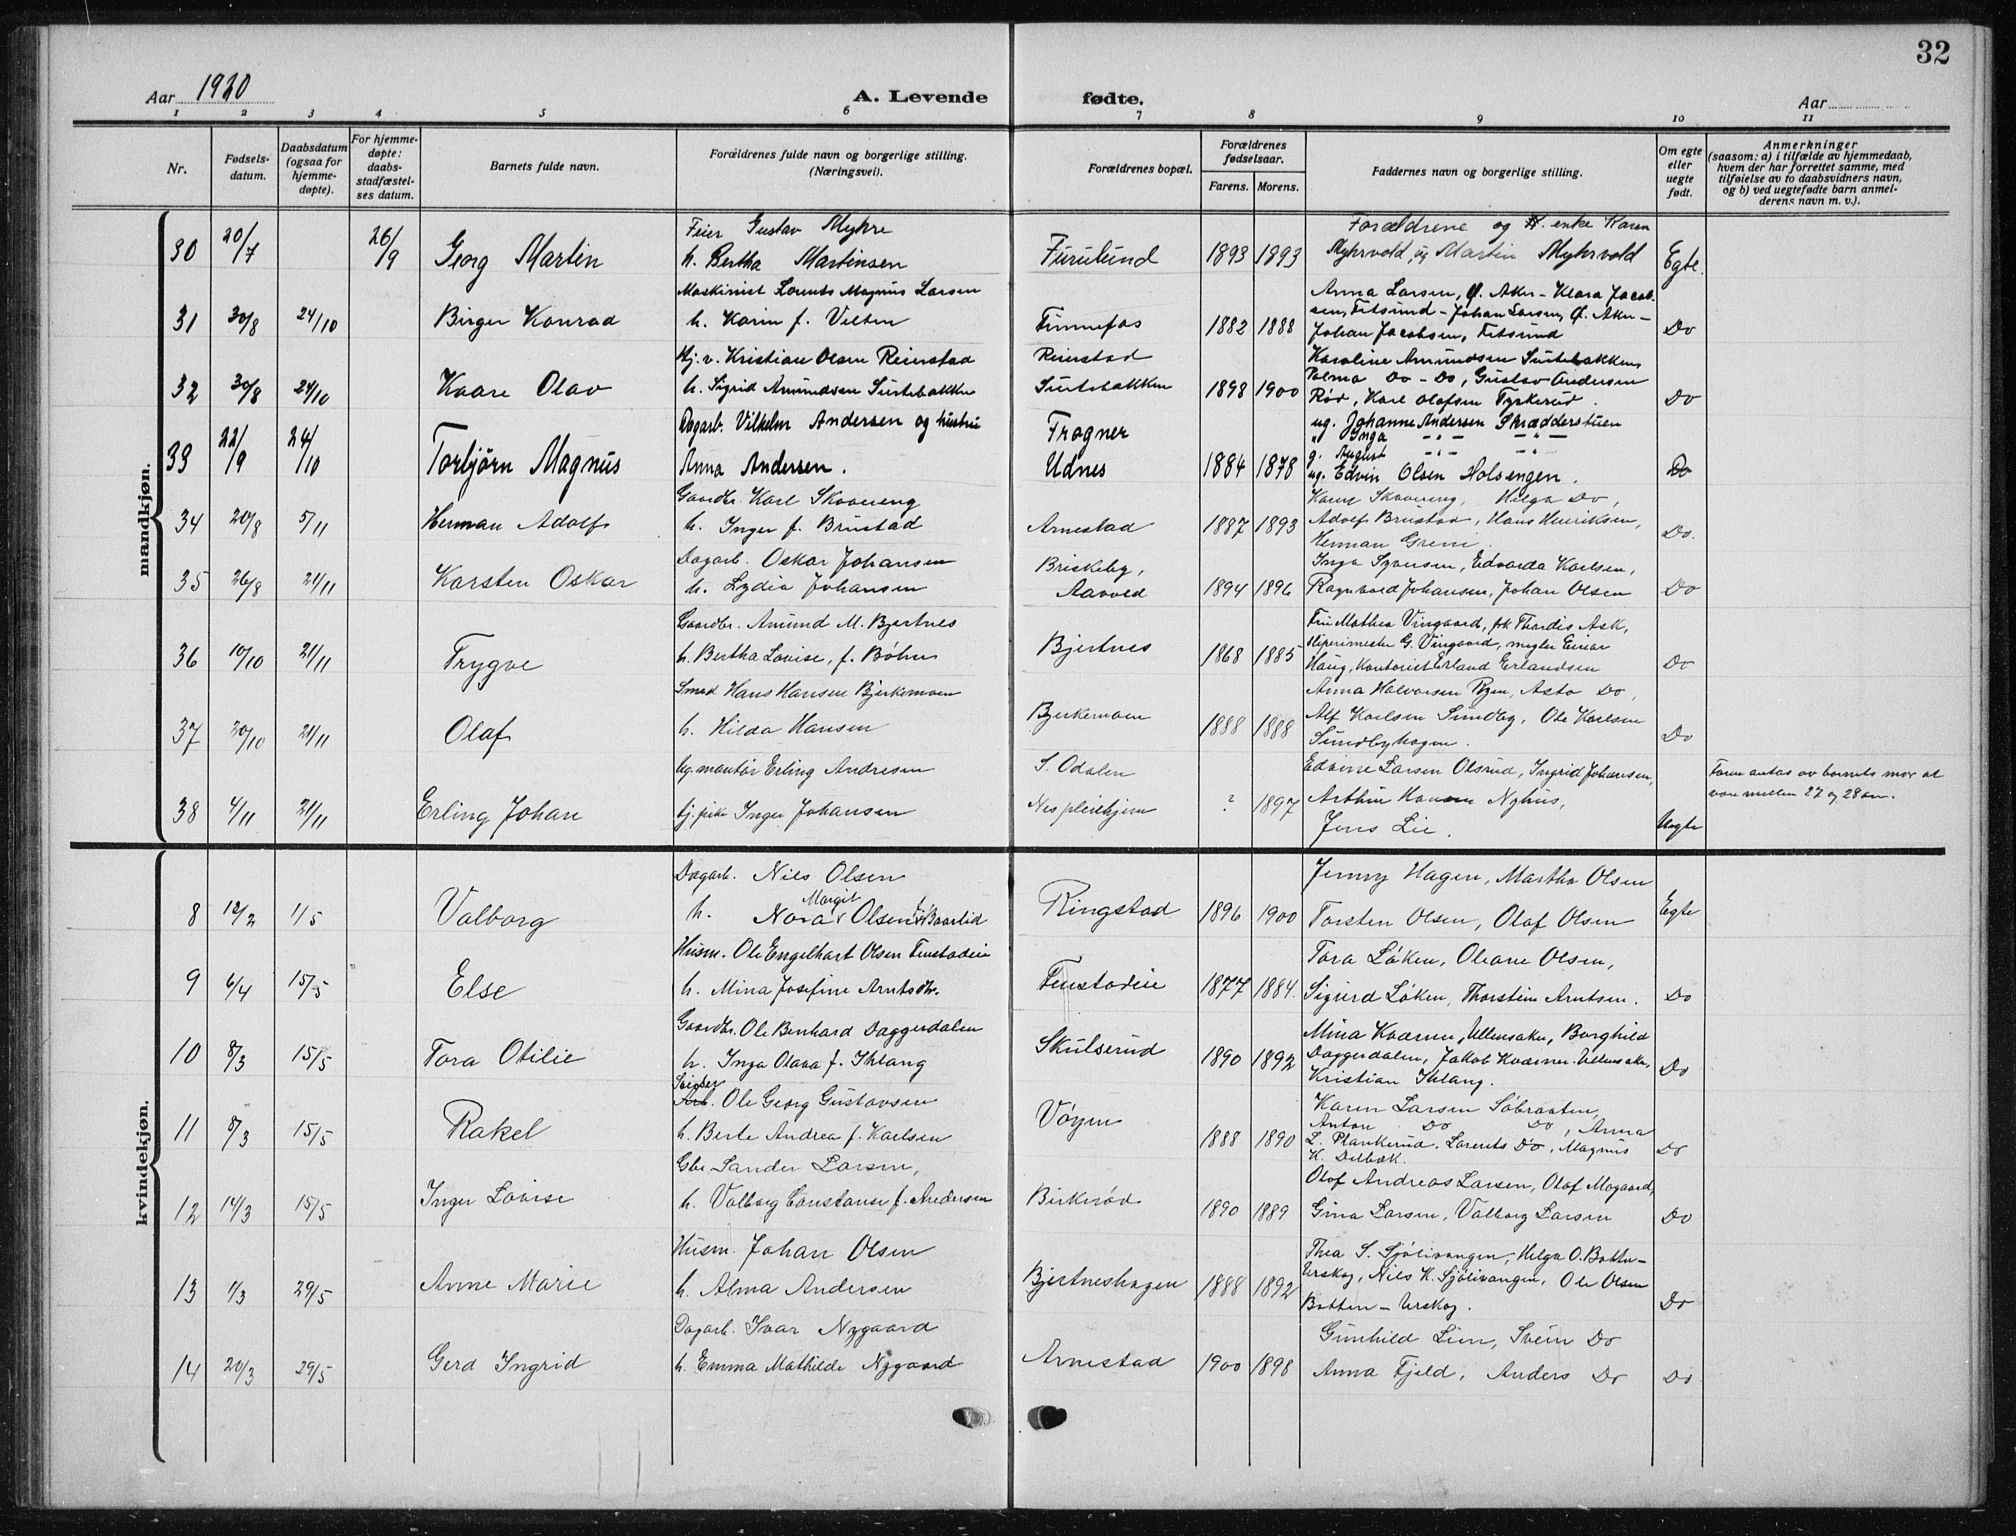 32
Aar 1920
A. Levende fødte.
Aar
1 2 3 4 5 6 7 8 9 10 11
Nr.
Fødsels-
datum.
Daabsdatum
(ogsaa for
hjemme-
døpte).
For hjemme-
døpte:
daabs-
stadfæstel-
ses datum.
Barnets fulde navn.
Forældrenes fulde navn og borgerlige stilling.
(Næringsvei).
Forældrenes bopæl.
Forældrenes
fødselsaar.
Farens. Morens.
Faddernes navn og borgerlige stilling.
Om egte
eller
uegte
født.
Anmerkninger
(saasom: a) i tilfælde av hjemmedaab,
hvem der har forrettet samme, med
tilføielse av to daabsvidners navn,
og b) ved uegtefødte barn anmel-
derens navn m. v.).
mandkjøn.
30 20/7 26/9 Georg Martin
Feier Gustav Myhre
h. Bertha Martinsen
Furulund 1893 1893
Forældrene og enke Karen
Myhrvold, ug Martin Myhrvold
Egte.
31 30/8 24/10 Birger Konrad
Maskinist Lorents Magnus Larsen
h. Karin f. Velten
Finnefos 1882 1888
Anna Larsen, Ø. Aker - Klara Jacob-
sen, Fetsund - Johan Larsen, Ø. Aker -
Johan Jacobsen, Fetsund
Do
32 30/8 24/10 Kaare Olav
Hj. v. Kristian Olsen Reierstad
h. Sigrid Amundsen Surtebakken
Reierstad
Surtebakken 1898 1900
Karoline Amundsen Surtebakken,
Palma Do - Do, Gustav Andersen
Rød, Karl Olafsen Tyrkerud.
Do
33 22/9 24/10 Torbjørn Magnus
Dagarb. Vilhelm Andersen og hustru
Anna Andersen.
Frogner
Udnes 1884 1878
ug. Johanne Andersen Skrædderstuen
" Inga -"- -"-
g. August -"- -"-
ug. Edvin Olsen Holsengen.
Do
34 20/8 5/11 Herman Adolf
Gaardbr. Karl Skovereng
h. Inger f. Brustad
Arnestad 1887 1893
Karen Skovereng, Helga Do,
Adolf Brustad, Hans Henriksen,
Herman Greni.
Do.
35 26/8 21/11 Karsten Oskar
Dagarb. Oskar Johansen
h. Lydia Johansen
Briskeby,
Aarvold 1894 1896
Inga Syversen, Edvarda Karlsen,
Ragnvald Johansen, Johan Olsen
Do
36 10/10 21/11 Trygve
Gaardbr. Amund M. Bjertnes
h. Bertha Lovise, f. Bøhn
Bjertnes 1868 1885
Fru Mathea Vingaard, frk Thordis Ask,
Skipsrimester G. Vingaard, megler Einar
Haug, Kontorist Erland Erlandsen
Do
37 20/10 21/11 Olaf
Smed Hans Hansen Bjerkemoen
h. Hilda Hansen
Bjerkemoen 1888 1888
Anna Halvorsen Ryen, Asta Do,
Alf Karlsen Sundby, Ole Karlsen
Sundbyhagen.
Do
38 4/11 21/11 Erling Johan
Ug. montør Erling Andresen
tj. pike Inger Johansen
S. Odalen
Nes pleiehjem ? 1897
Edvine Larsen Olsrud, Ingrid Johansen,
Arthur Hansen Nyhus,
Jens Lie.
Uegte
Faren antas av barnets mor at
være mellem 27 og 28 aar.
kvindekjøn.
8 12/2 1/5 Valborg
Dagarb. Nils Olsen
Margit
h. Nora Olsen f. Baarlid
Ringstad 1896 1900
Jenny Hagen, Martha Olsen
Torsten Olsen, Olaf Olsen
Egte
9 6/4 15/5 Else
Husm. Ole Engelhart Olsen Fenstadeie
h. Mina Josefine Arntsdtr.
Fenstadeie 1877 1884.
Tora Løken, Oleane Olsen,
Sigurd Løken, Thorstein Arntsen.
Do
10 8/3 15/5 Tora Otilie
Gaardbr. Ole Benhard Daggerdalen
h. Inga Olava f. Ihlang
Skulserud 1890 1892
Mina Kværner, Ullensaker, Borghild
Daggerdalen, Jakob Kværner Ullensaker,
Kristian Ihlang.
Do
11 8/3 15/5 Rakel
Snidker
Arb. Ole Georg Gustavsen
h. Berte Andrea f. Karlsen
Vøyen 1888 1890
Karen Larsen Søbraaten,
Anton Do Do, Anna
L. Plankerud, Lorents Do, Magnus
K. Delbæk.
Do
12 14/3 15/5 Inger Lovise
Gbr. Sander Larsen,
h. Valborg Constanse f. Andersen
Birkerød 1890 1889
Olaf Andreas Larsen, Olaf Mogaard,
Gina Larsen, Valborg Larsen
Do
13 1/3 29/5 Anne Marie
Husm. Johan Olsen
h. Alma Andersen
Bjertneshagen 1888 1892
Thea S. Sjølivangen, Helga O. Botten-
Urskog, Nils K. Sjølivangen, Ole Olsen
Botten - Urskog.
Do
14 20/3 29/5 Gerd Ingrid
Dagarb. Ivar Nygaard
h. Emma Mathilde Nygaard
Arnestad 1900 1898
Gunhild Lien, Svein Do
Anna Fjeld, Anders Do
Do